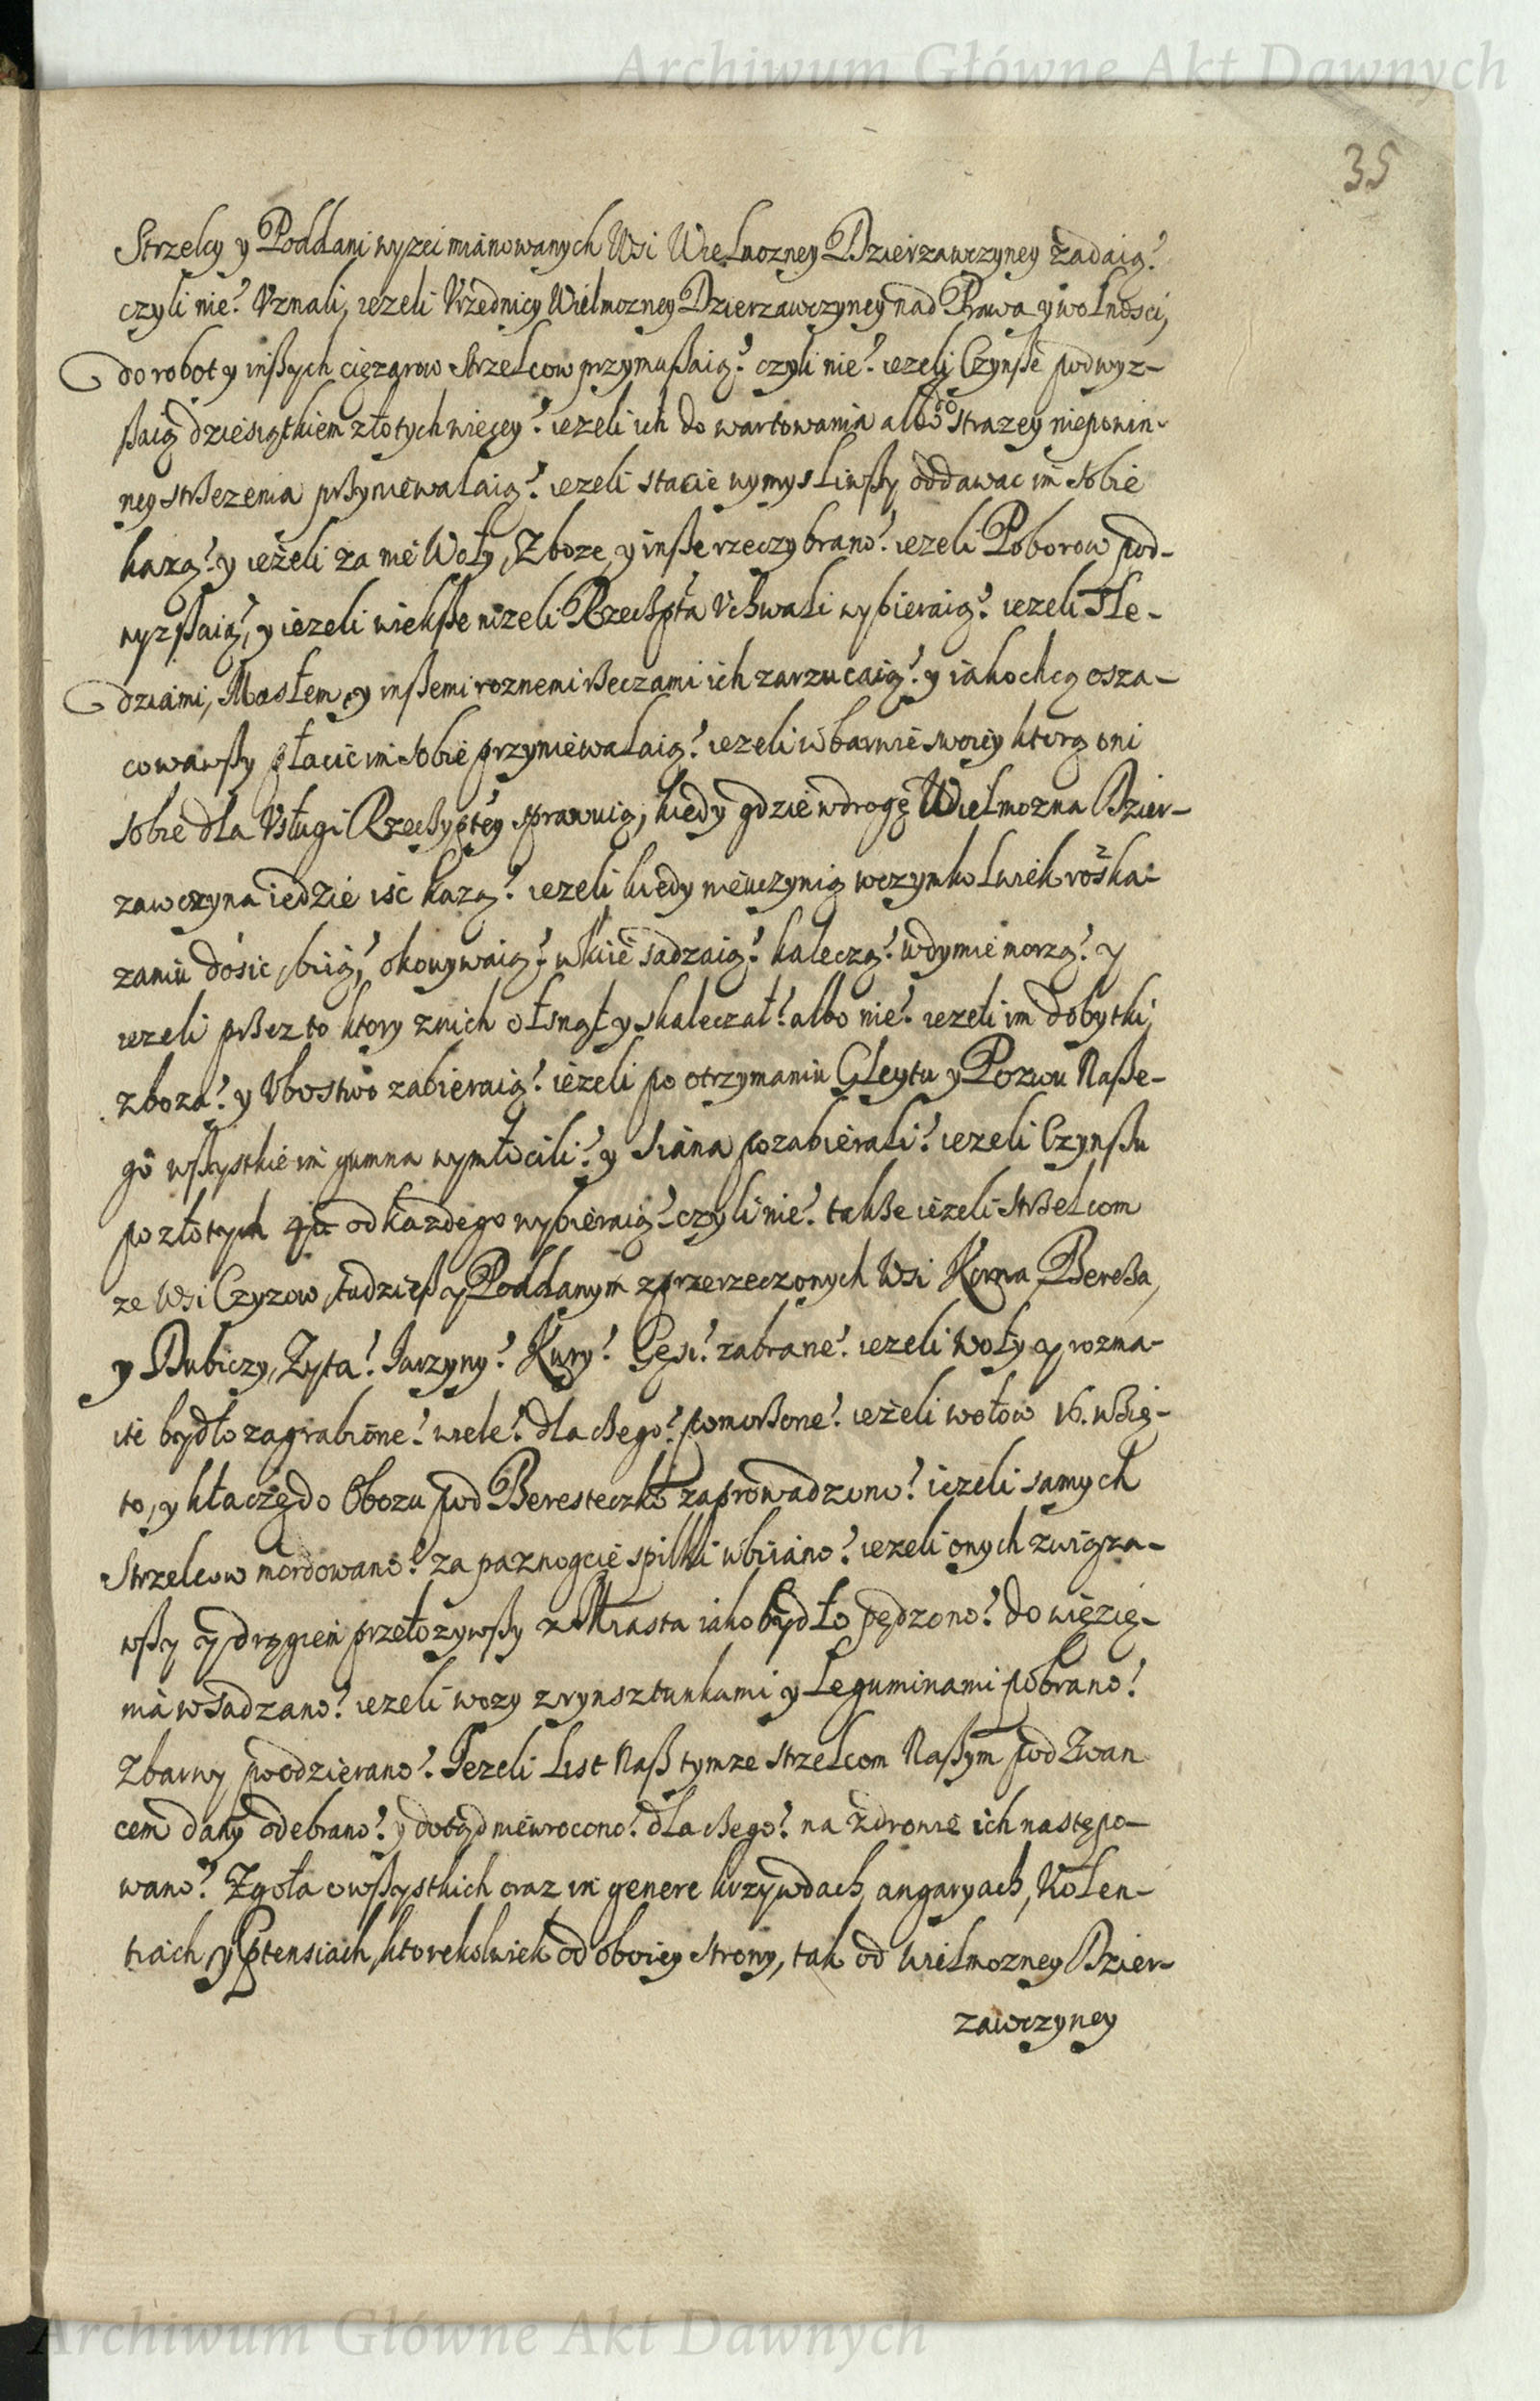 Archiwum Główne Akt Dawnych
35
Strzelcy y Poddani wyzei mianowanych Wsi Wielmozney Dzierzawczyney zadaią?
czyli nie? Vznali, iezeli Vrzednicy Wielmozney Dzierzawczyney nad Prawa y wolnosci,
do robot y inßych cięzarow Strzelcow przymußaią? czyli nie? iezely Czynße podwyz-
ßaią dziesiątkiem złotych wiecey? iezeli ich do wartowania albo do strazey niepowin-
ney strßezenia prßyniewalaią? iezeli stacie wymysliwßy oddawac im sobie
kazą? y iezeli za nie Woły, Zboze, y inße rzeczy brano? iezeli Poborow pod-
wyzßaią, y iezeli wiekße nizeli Rzeczpta Vchwali wybieraią? iezeli Sle-
dziami, Masłem, y inßemi roznemi rßeczami ich zarzucaią? y iako chcą osza-
cowawßy płacic im sobie przyniewalaią? iezeli w barwie swoiey ktorą oni
sobie dla Vsługi Rzeczyptey sprawuią, kiedy gdzie w drogę Wielmozna Dzier-
zawczyna iedzie isc kazą? iezeli kiedy nieuczynią wczymkolwiek roska-
zaniu dosic, biią? okowywaią? w kłie sadzaią? kaleczą? w dymie morzą? y
iezeli prßez to ktory z nich ołsnął y skaleczał? albo nie? iezeli im dobytki,
zboza? y Vbostwo zabieraią? iezeli po otrzymaniu Gleytu y Pozwu Naße-
go wßystkie im gumna wymłocili? y siana pozabierali? iezeli Czynßu
po złotych 40 od kazdego wybieraią? czyli nie? takße iezeli Strßelcom
ze Wsi Czyzow, tudzieß y Poddanym z przerzeczonych Wsi Korna, Bereßa,
y Dubiczy, Zyta? Iarzyny? Kury? Gęsi? zabrane? iezeli Woły y rozma-
ite bydło zagrabione? wiele? dla czego? pomorßone? iezeli wołow 16. wzię-
to, y kłaczę do Obozu pod Beresteczko zaprowadzono? iezeli samych
Strzelcow mordowano? za paznogcie spilki wbiiano? iezeli onych związa-
wßy y drągiem przełozywßy z Miasta iako bydło pędzono? do więzię-
nia wsadzano? iezeli wozy z rynsztunkami y Leguminami pobrano?
Z barwy poodzierano? Iezeli List Naß tymze Strzelcom Naßym pod Zwan
cem dany odebrano? y dotąd niewrocono? dla czego? na zdrowie ich nastepo-
wano? Zgoła o wßystkich oraz in genere krzywdach, angaryach, Violen-
tiach, y Ptensiach, ktorekolwiek od oboiey strony, tak od Wielmozney Dzier-
zawczyney
Archiwum Główne Akt Dawnych